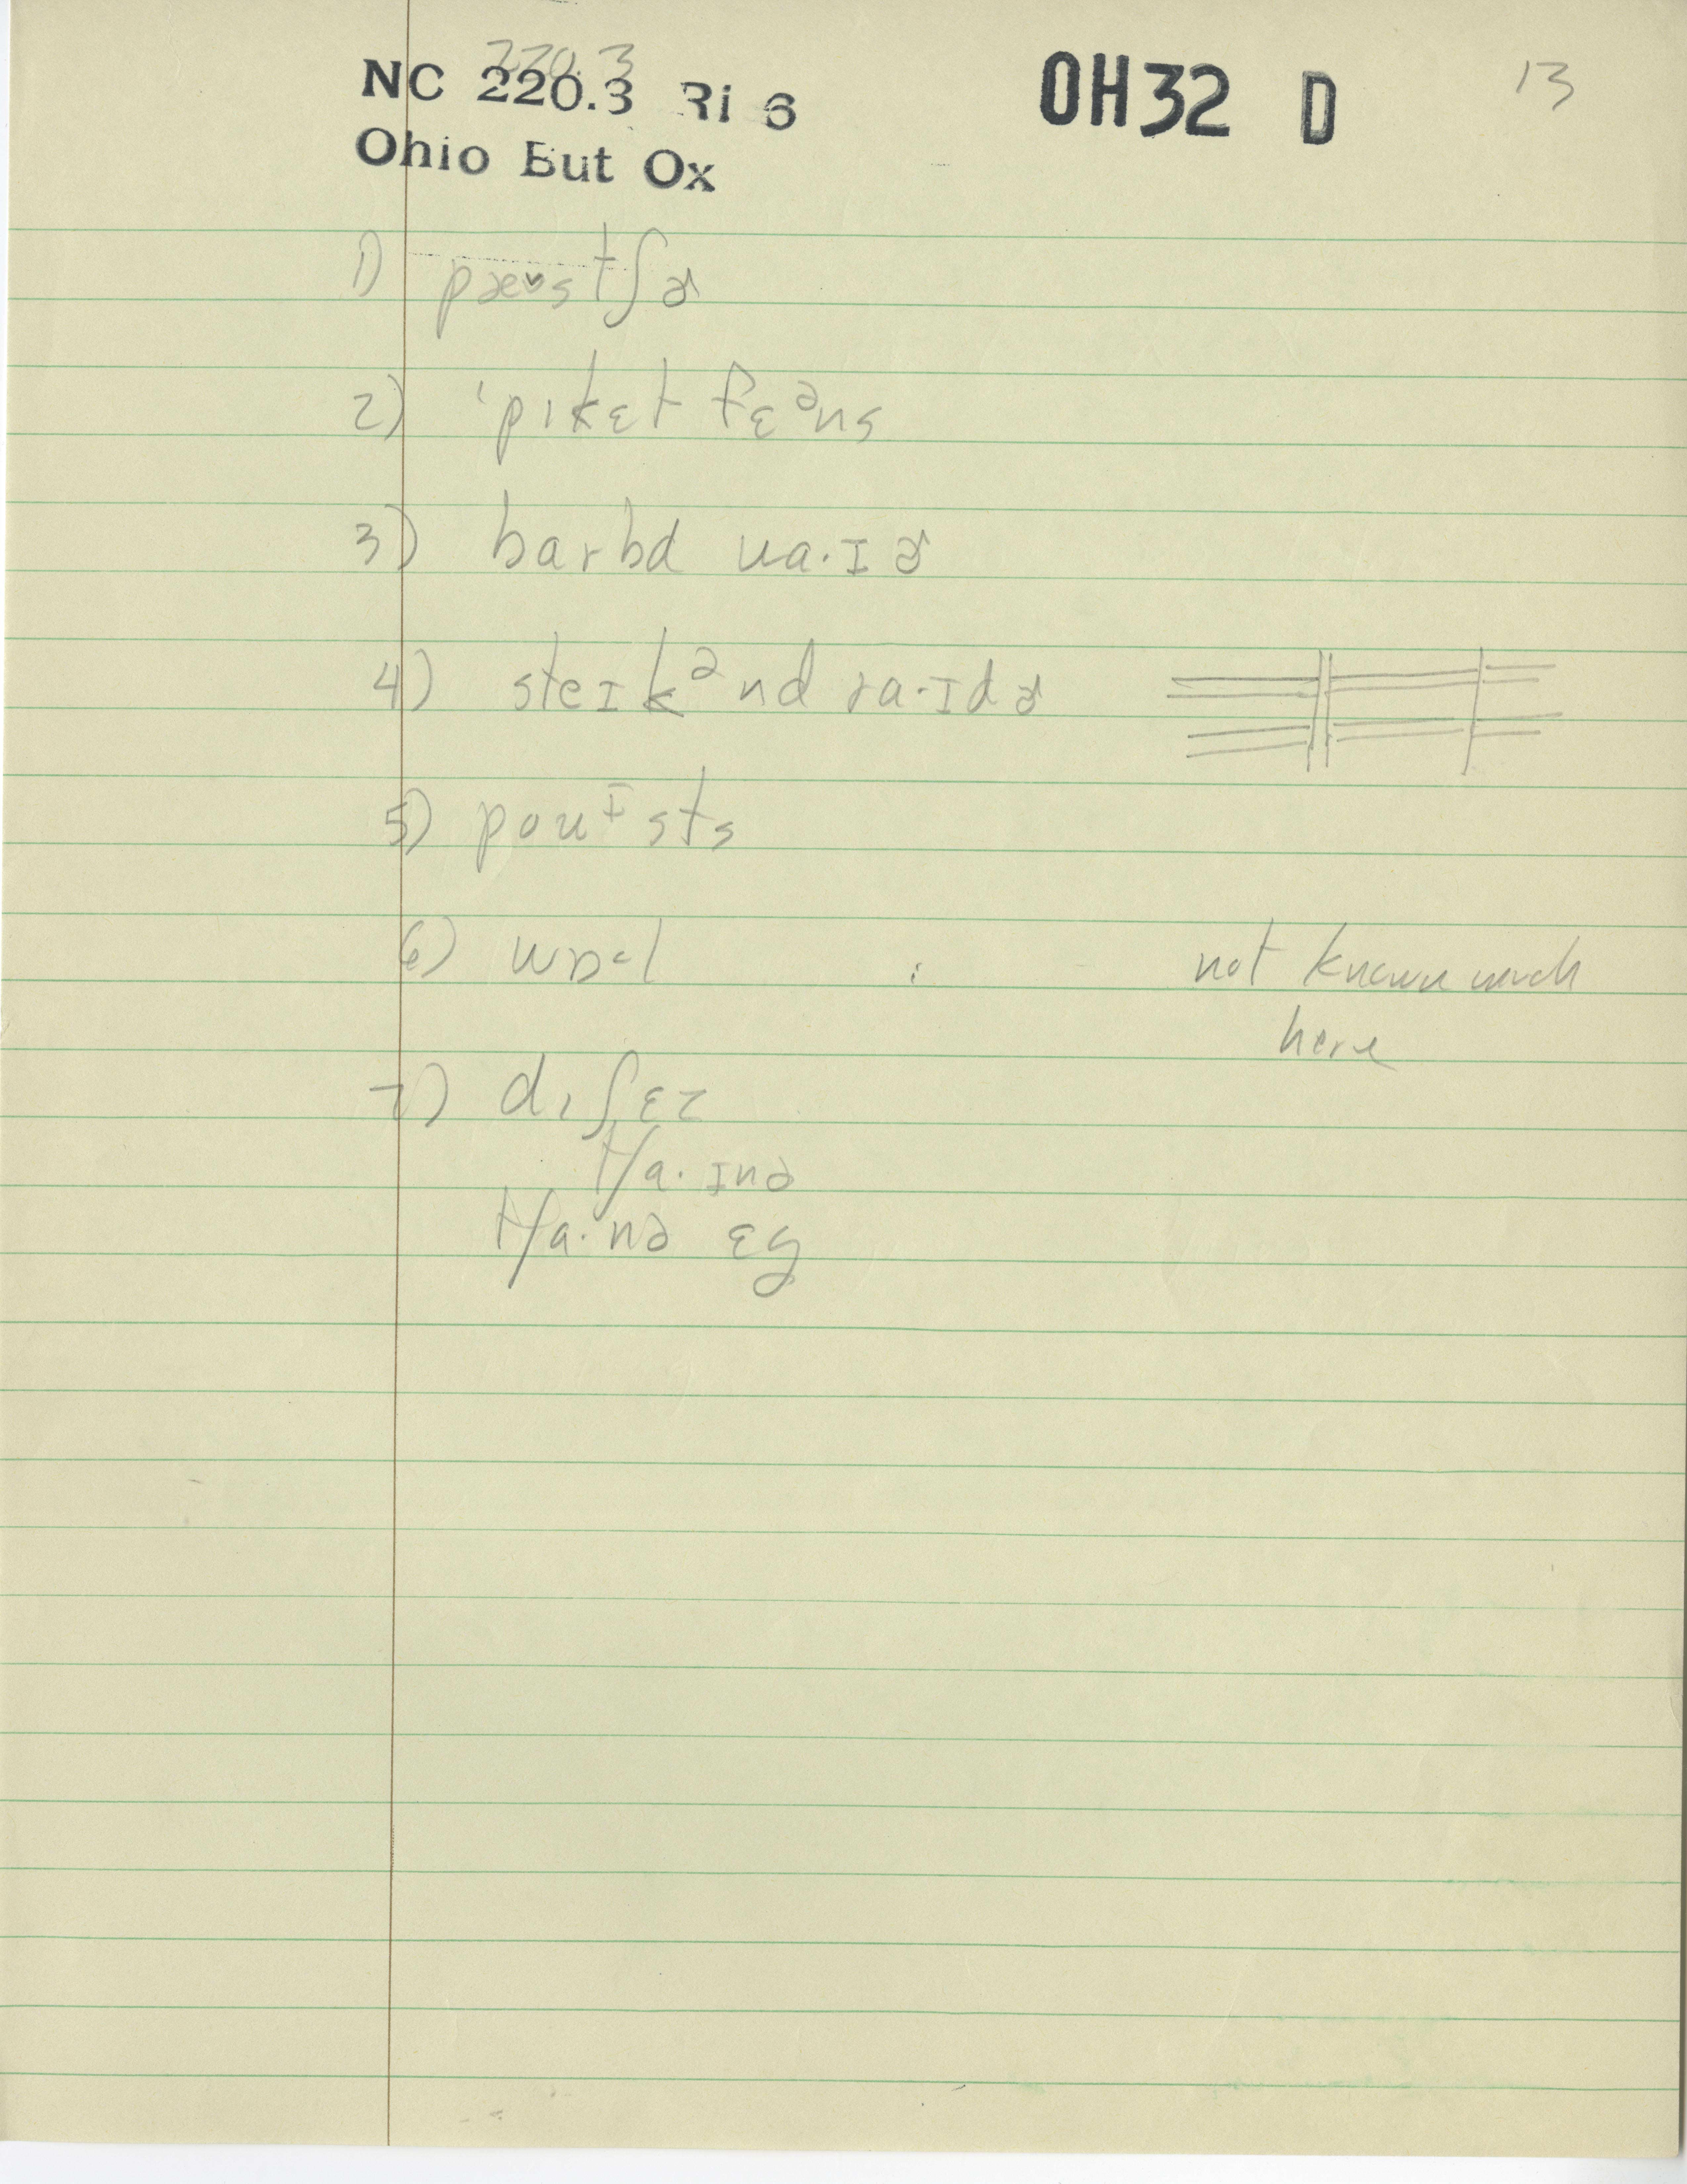 220.3
NC 220.3 Ri 6 OH32 D 13
Ohio But Ox
1) pæᵛstʃɚ
2) ˈpɪkɛt fɛᵊns
3) barbd ua·ɪɚ
4) steɪkᵊnd ra·ɪdɚ
5) pouᶦsts
6) wɒ˂l : not known much
here
7) dɪʃɛz
tʃa·ɪnə
tʃa·nə ɛg